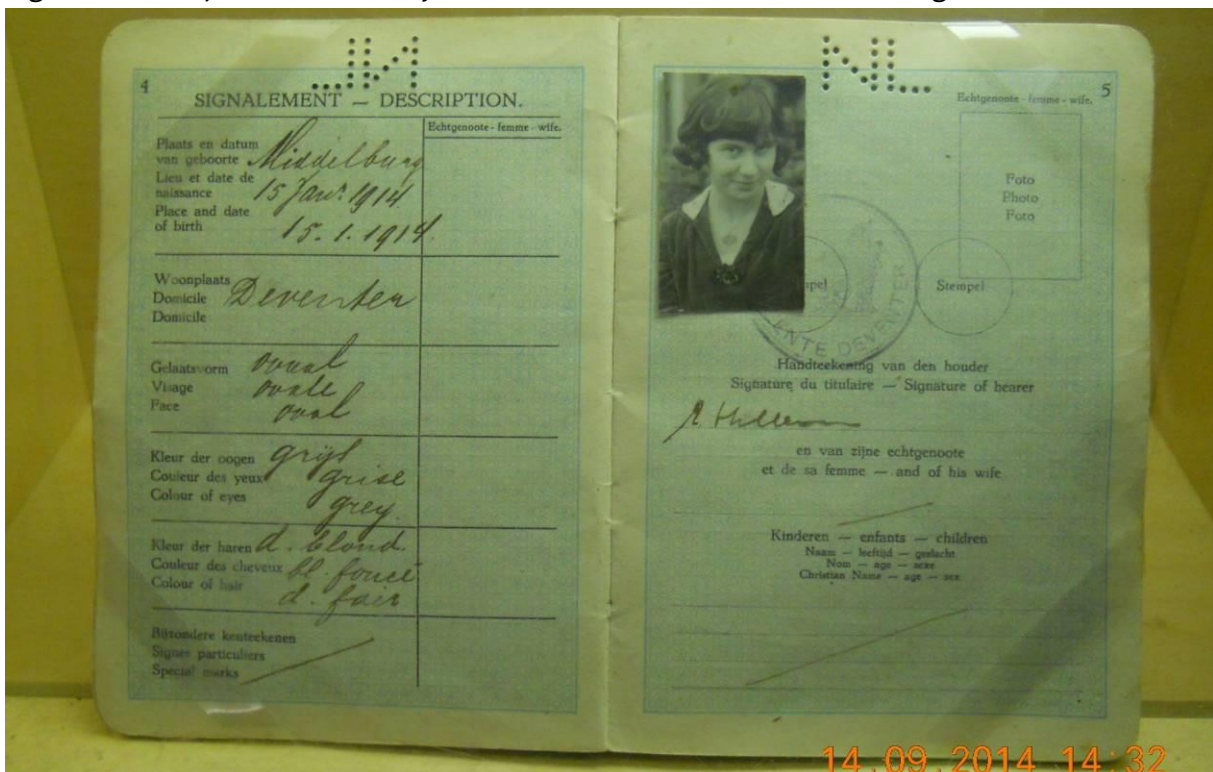 4
SIGNALEMENT — DESCRIPTION.
Echtgenoote - femme - wife.
Plaats en datum
van geboorte Middelburg
Lieu et date de
naissance 15 Jan. 1914
Place and date
of birth 15.1.1914.
Woonplaats
Domicile Deventer
Domicile
Gelaatsvorm ovaal
Visage ovale
Face oval
Kleur der oogen grijs
Couleur des yeux grise
Colour of eyes grey.
Kleur der haren d. blond.
Couleur des cheveux bl. foncé
Colour of hair d. fair
Bijzondere kenteekenen
Signes particuliers
Special marks
NL
5
Echtgenoote - femme - wife.
Foto
Photo
Foto
Stempel
DEVENTER
Handteekening van den houder
Signature du titulaire — Signature of bearer
en van zijne echtgenoote
et de sa femme — and of his wife
Kinderen — enfants — children
Naam — leeftijd — geslacht
Nom — age — sexe
Christian Name — age — sex
14.09.2014 14:32